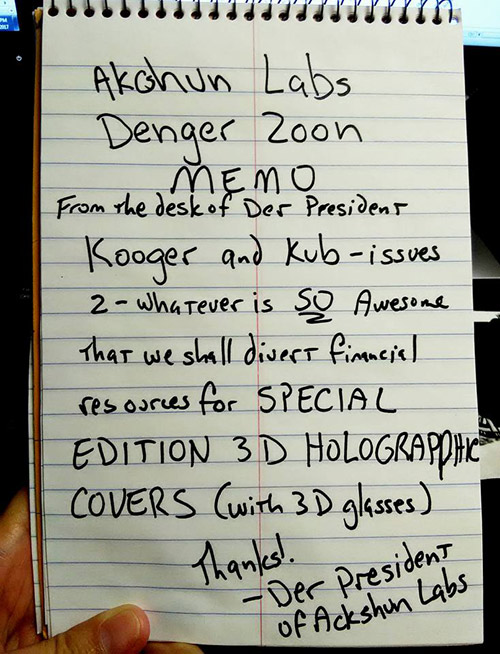 Akshun Labs
Denger Zoon
MEMO
From the desk of Der President
Kooger and Kub-issues
2-whatever is SO Awesome
That we shall divert financial
resources for SPECIAL
EDITION 3D HOLOGRAPPHIC
COVERS (with 3D glasses)
Thanks!
-Der President
of Ackshun Labs